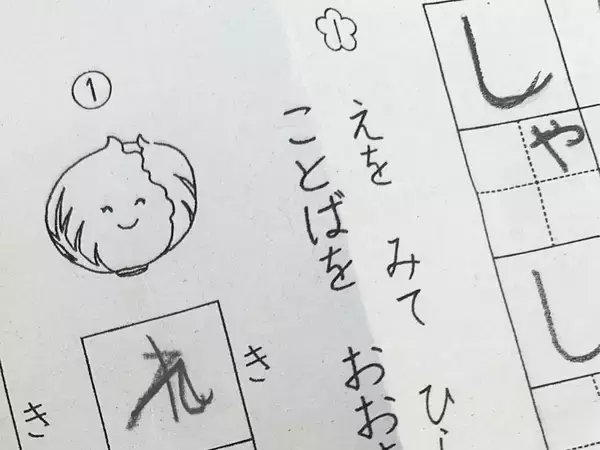 しゃ
し
1
えを みて ひ
ことばを おお
①
き
き